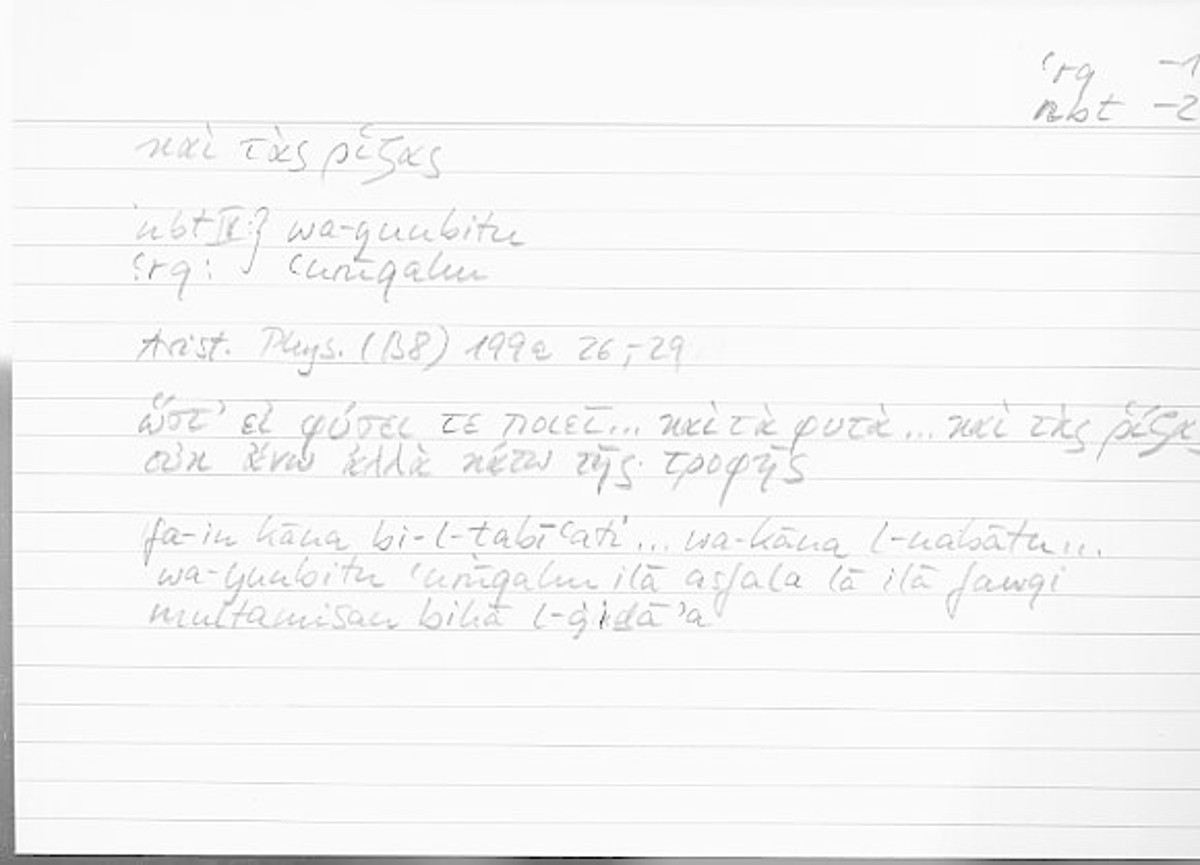 ʿrq -1
nbt -2
καὶ τὰς ῥίζας
nbt IV:} wa-yunbitu
ʿrq: ʿurūqahu
Arist. Phys. (B8) 199a 26;-29
ὥστ' εἰ φύσει τε ποιεῖ... καὶ τὰ φυτὰ... καὶ τὰς ῥίζα
οὐκ ἄνω ἀλλὰ κάτω τῆς τροφῆς
fa-in kāna bi-l-tabīʿati... wa-kāna l-nabātu...
wa-yunbitu ʿurūqahu ilā asfala lā ilā fawqi
multamisan bihā l-ġidā'a